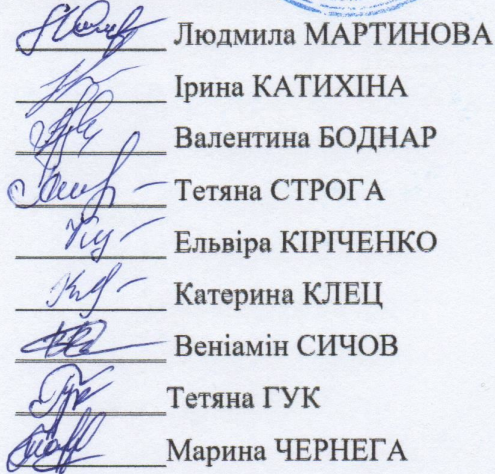 Людмила МАРТИНОВА
Ірина КАТИХІНА
Валентина БОДНАР
Тетяна СТРОГА
Ельвіра КІРІЧЕНКО
Катерина КЛЕЦ
Веніамін СИЧОВ
Тетяна ГУК
Марина ЧЕРНЕГА